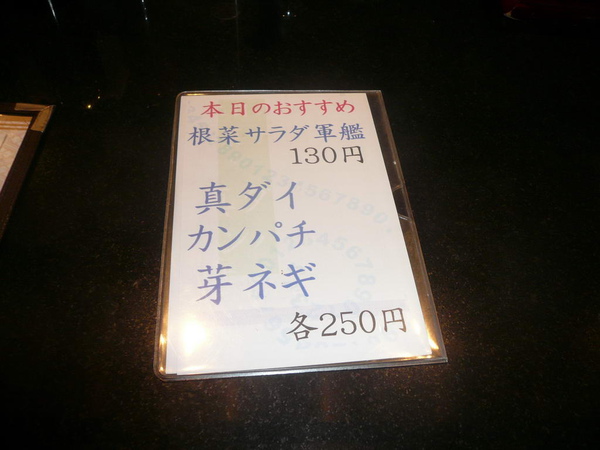 本日のおすすめ
根菜サラダ軍艦
130円
真ダイ
カンパチ
芽ネギ
各250円